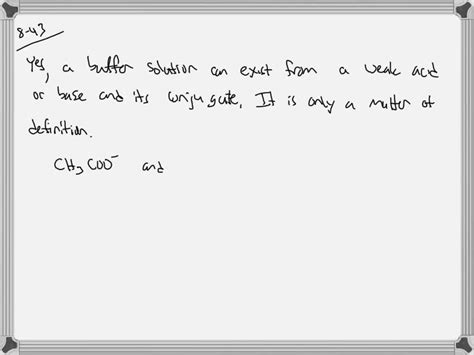 8-43
Yes, a buffer solution can exist from a weak acid
or base and its conjugate. It is only a matter of
definition.
CH3COO⁻ and